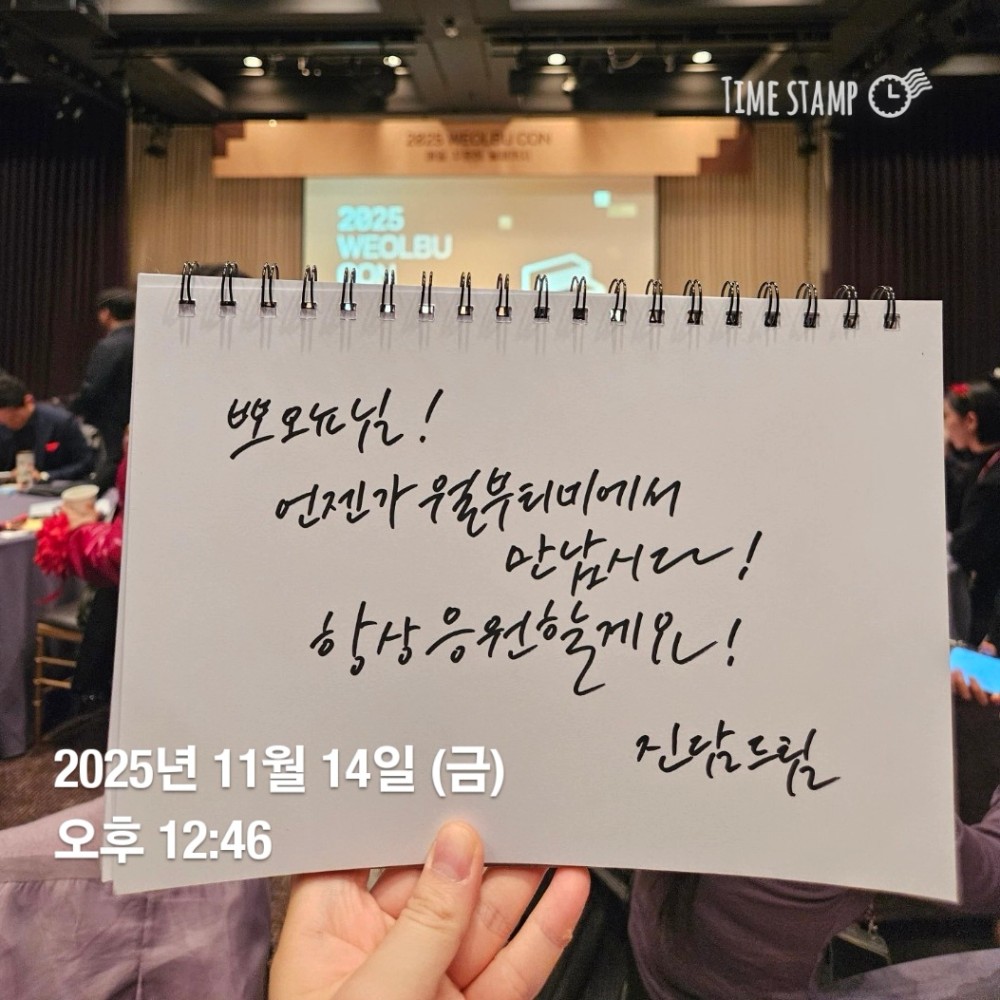 TIME STAMP
2025 WEOLBU CON
2025
WEOLBU
CON
뽀오뉴님!
언젠가 월부티비에서
만납시다~!
항상 응원할게요~!
진담드림
2025년 11월 14일 (금)
오후 12:46